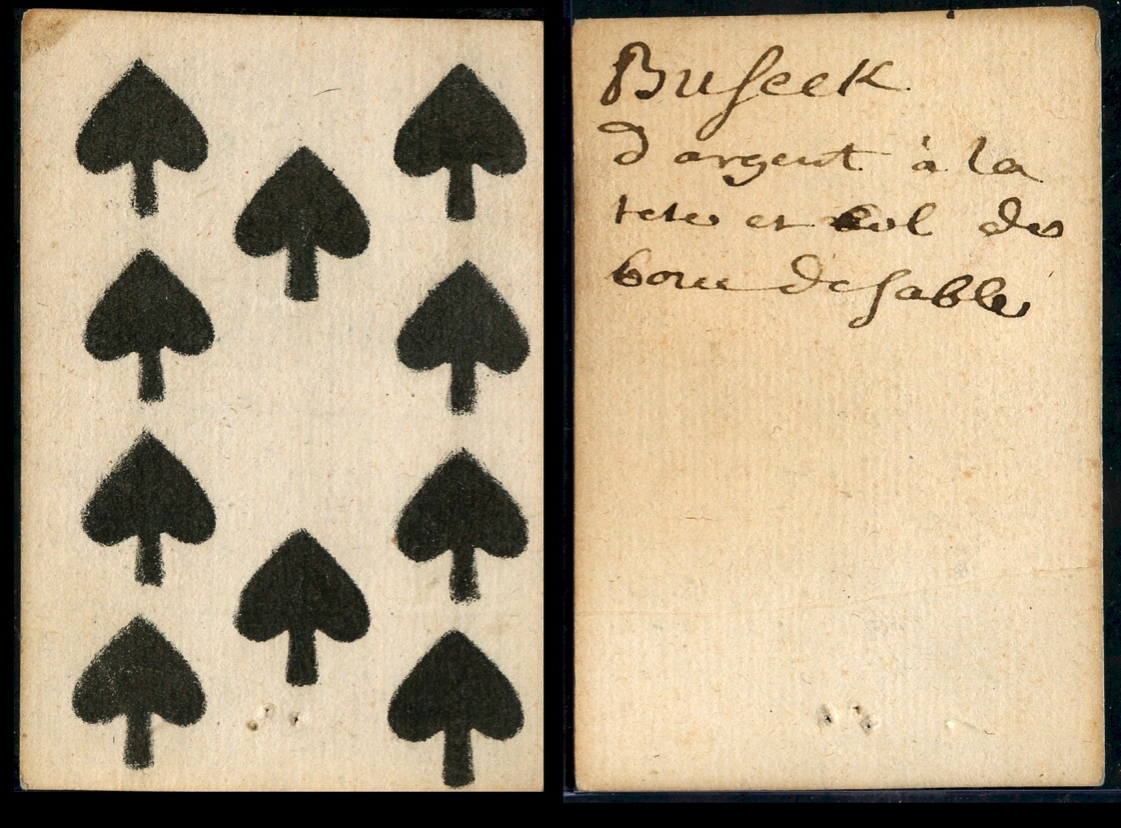 Buseek
d'argent à la
tete et col de
bouc de sable